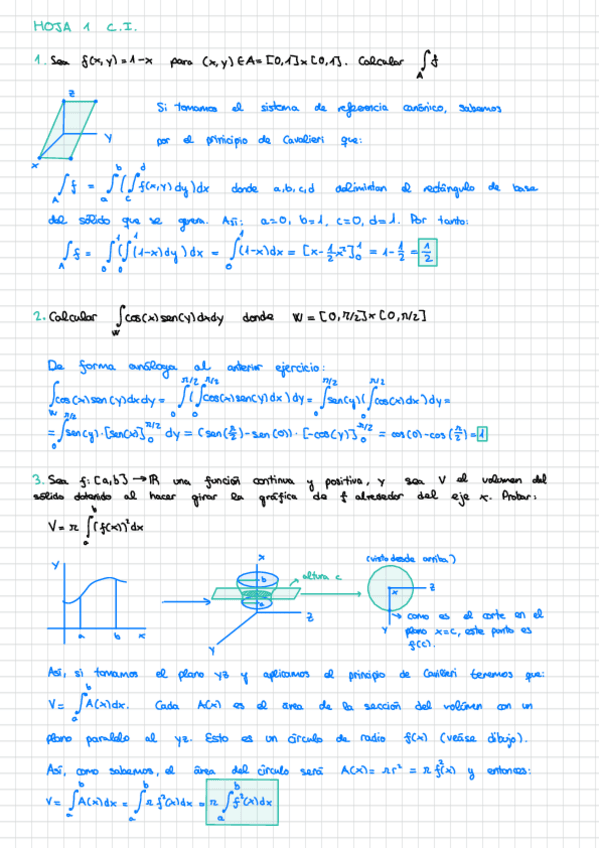 HOJA 1 C.I.
1. Sea f(x,y)=1-x para (x,y)∈A=[0,1]×[0,1]. Calcular ∫_A f
Z
Y
X
Si tomamos el sistema de referencia canónico, sabemos
por el principio de Cavalieri que:
∫_A f = ∫_a^b (∫_c^d f(x,y)dy)dx donde a,b,c,d delimitan el rectángulo de base
del sólido que se genera. Así: a=0, b=1, c=0, d=1. Por tanto:
∫_A f = ∫_0^1 (∫_0^1 (1-x)dy)dx = ∫_0^1 (1-x)dx = [x-1/2x²]_0^1 = 1-1/2 = 1/2
2. Calcular ∫_W cos(x)sen(y)dxdy donde W=[0,π/2]×[0,π/2]
De forma análoga al anterior ejercicio:
∫_W cos(x)sen(y)dxdy = ∫_0^{π/2} (∫_0^{π/2} cos(x)sen(y)dx)dy = ∫_0^{π/2} sen(y)(∫_0^{π/2} cos(x)dx)dy =
= ∫_0^{π/2} sen(y)·[sen(x)]_0^{π/2} dy = (sen(π/2)-sen(0))·[-cos(y)]_0^{π/2} = cos(0)-cos(π/2) = 1
3. Sea f:[a,b]→ℝ una función continua y positiva, y sea V el volumen del
sólido obtenido al hacer girar la gráfica de f alrededor del eje x. Probar:
V = π ∫_a^b (f(x))²dx
Y
a b x
x
b
a
altura c
Z
Y
(visto desde arriba)
x
Z
Y
como es el corte en el
plano x=c, este punto es
f(c).
Así, si tomamos el plano yz y aplicamos el principio de Cavilieri tenemos que:
V = ∫_a^b A(x)dx. Cada A(x) es el área de la sección del volúmen con un
plano paralelo al yz. Esto es un círculo de radio f(x) (veáse dibujo).
Así, como sabemos, el área del círculo será A(x)= πr² = π f²(x) y entonces:
V = ∫_a^b A(x)dx = ∫_a^b π f²(x)dx = π ∫_a^b f²(x)dx